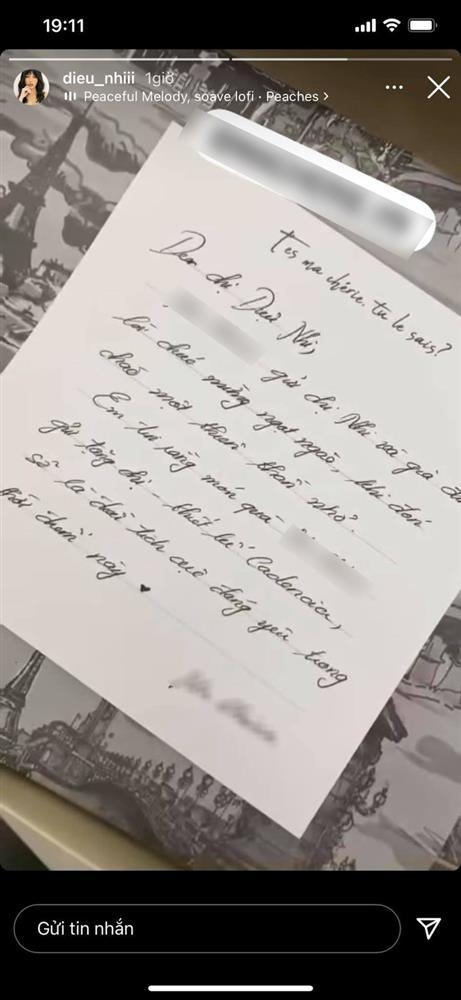 19:11
dieu_nhiii 1giờ
Peaceful Melody, soave lofi · Peaches >
T'es ma chérie. tu le sais?
Dear chị Diệu Nhi,
gửi chị Nhi và gia đình
lời chúc mừng ngọt ngào, khi đón
chào một thiên thần nhỏ.
Em tin rằng món quà
gửi tặng chị - thiết kế Cadencia,
sẽ là dấu tích cực đáng yêu trong
thời điểm này ♥
Gửi tin nhắn